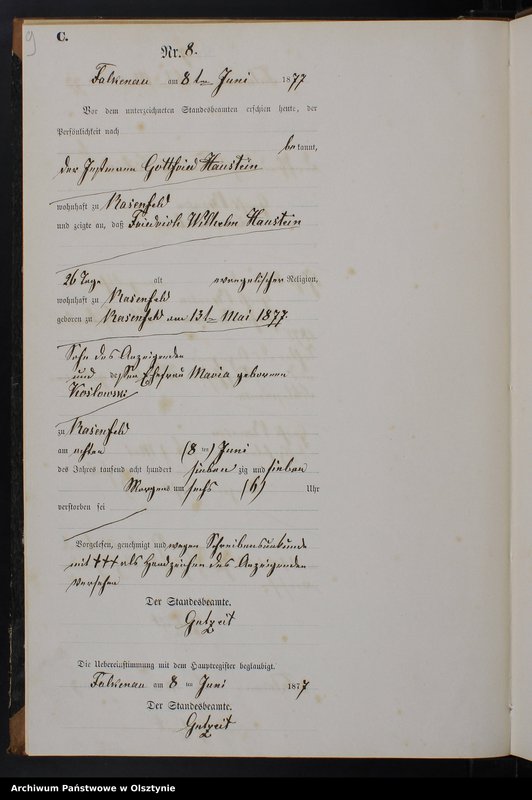 9
C.
Nr. 8.
Falkenau am 8 ten Juni 1877
Vor dem unterzeichneten Standesbeamten erschien heute, der
Persönlichkeit nach
be kannt,
der Instmann Gottfried Haustein
wohnhaft zu Rasenfeld
und zeigte an, daß Friedrich Wilhelm Haustein
26 Tage alt evangelischer Religion,
wohnhaft zu Rasenfeld
geboren zu Rasenfeld am 13 ten Mai 1877
Sohn des Anzeigenden
und dessen Ehefrau Maria geborenen
Koslowski
zu Rasenfeld
am achten (8 ten) Juni
des Jahres tausend acht hundert sieben zig und sieben
Morgens um sechs (6) Uhr
verstorben sei
Vorgelesen, genehmigt und wegen Schreibensunkunde
mit +++ als Handzeichen des Anzeigenden
versehen
Der Standesbeamte.
Gutzeit
Die Uebereinstimmung mit dem Hauptregister beglaubigt.
Falkenau am 8 ten Juni 1877
Der Standesbeamte.
Gutzeit
Archiwum Państwowe w Olsztynie